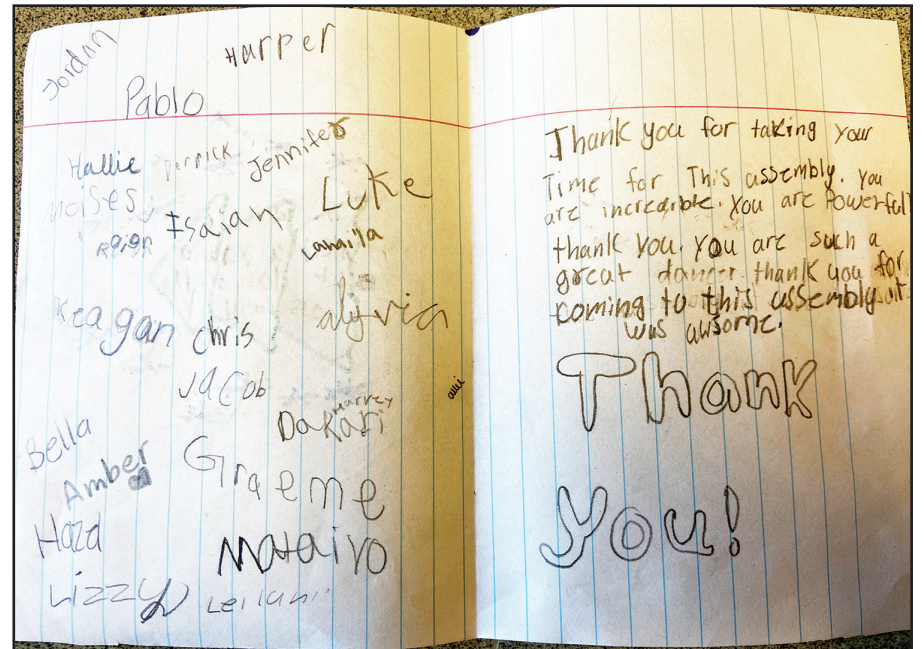 Jordan
Harper
Pablo
Hallie Derrick Jennifer
moises Isaiah Luke
Reign Lamaila
Keagan chris alyvia
Jacob
allie
Harvey
Dakari
Bella
Amber Graeme
Hazd Mataivo
Lizzy Leilani
Thank you for taking your
Time for This assembly. you
are incredible. you are Powerful
thank you. you are such a
great dancer thank you for
coming to this assembly it
was awsome.
Thank
you!